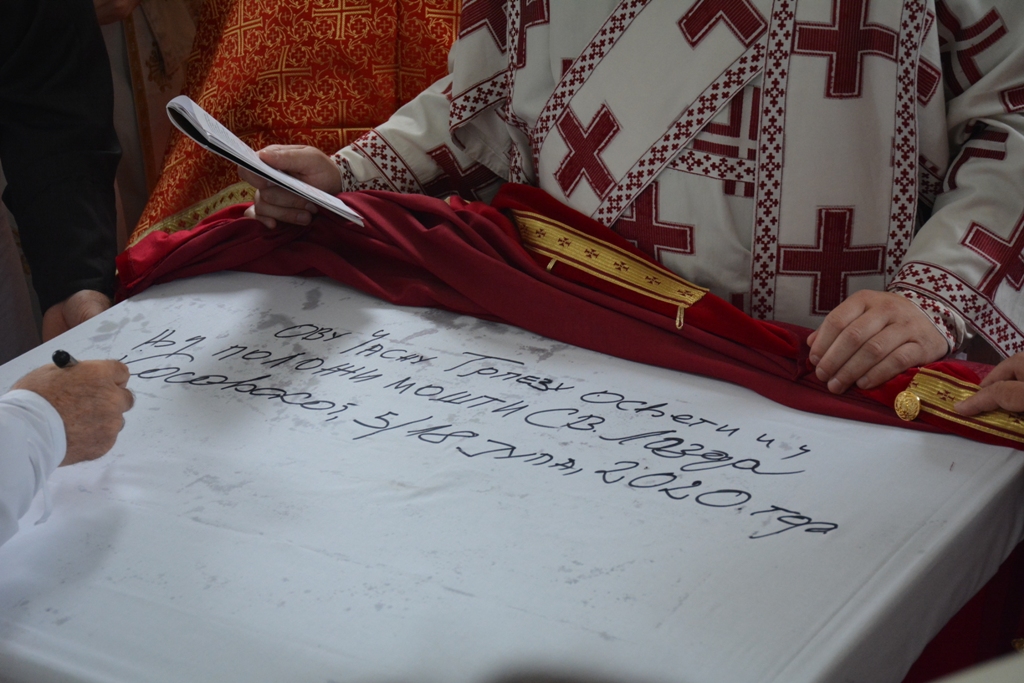 ову Часну Трпезу освети и у
њу положи мошти Св Лазара
Косовског, 5/18 јула, 2020. год